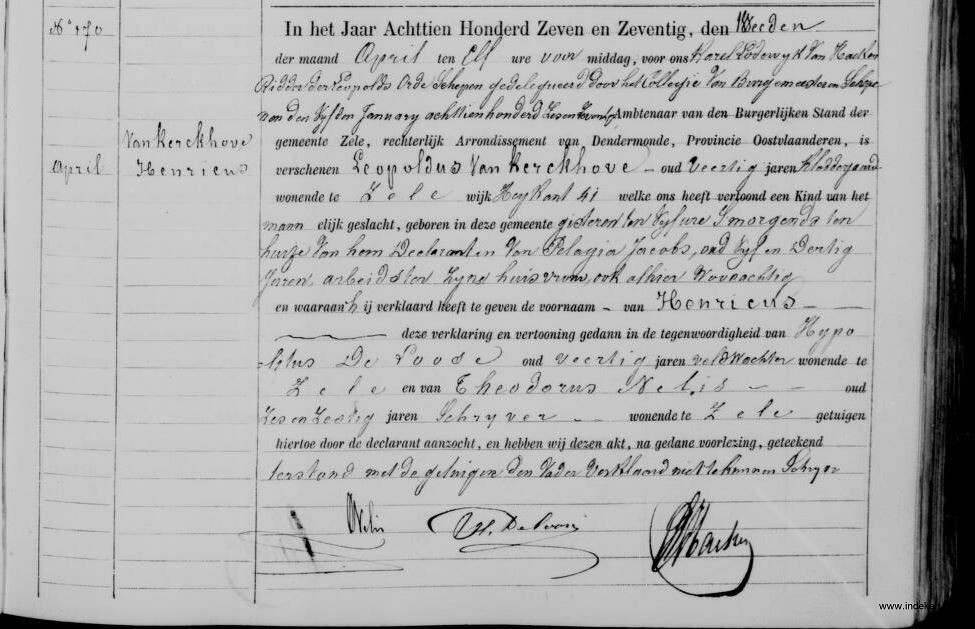 N° 170
In het Jaar Achttien Honderd Zeven en Zeventig, den
der maand April ten Elf ure voor middag, voor ons Karel Lodewyk Van Haelken
Ridder der Leopolds Orde Schepen gedelegueerd door het Collegie Van Burgemeester en Schepe-
nen den Vyfden January achttien honderd Zes en Zeventig, Ambtenaar van den Burgerlijken Stand der
Van Kerckhove
gemeente Zele, rechterlijk Arrondissement van Dendermonde, Provincie Oostvlaanderen, is
April Henricus
verschenen Leopoldus Van Kerckhove – oud Veertig jaren
wonende te Zele wijk Heykant 41 welke ons heeft vertoond een Kind van het
mann elijk geslacht, geboren in deze gemeente gisteren ten Vyf ure S'morgends ten
huize Van hem Declarant en Van Pelagia Jacobs, oud Vyf en Dertig
Jaren, arbeidster Zyne huisvrouw, ook alhier Woonachtig
en waaraan h ij verklaard heeft te geven de voornaam – van Henricus –
deze verklaring en vertooning gedann in de tegenwoordigheid van Hypo
litus De Loose oud Veertig jaren veldWachter wonende te
Zele en van Theodorus Nelis – – oud
Zes en Zestig jaren Schryver – wonende te Zele getuigen
hiertoe door de declarant aanzocht, en hebben wij dezen akt, na gedane voorlezing, geteekend
terstond met de getuigen den Vader Verklaard niet te kunnen Schryven
Nelis
www.indeke